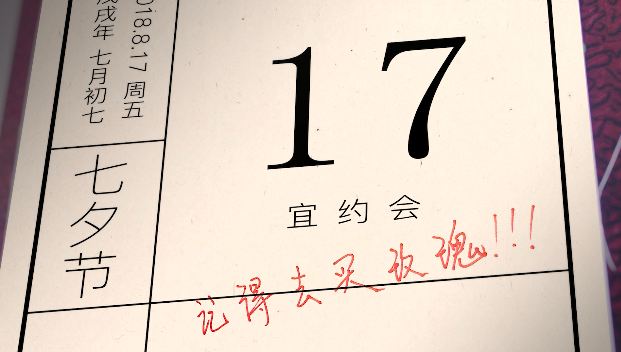 2018.8.17 周五
戊戌年 七月初七
七夕节
17
宜约会
记得去采玫瑰!!!